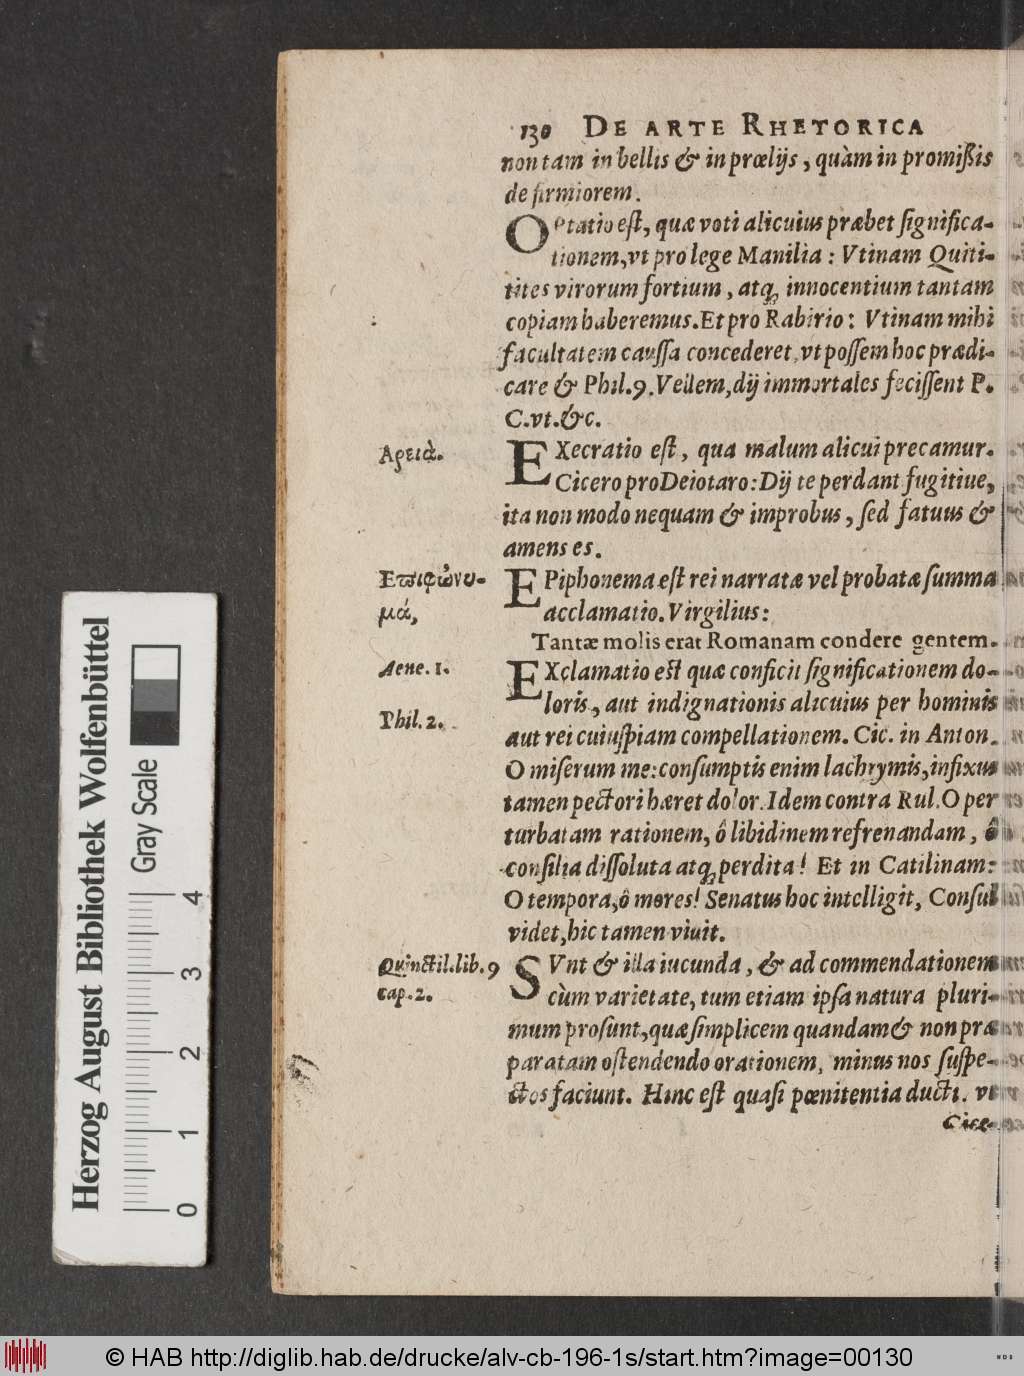 130 DE ARTE RHETORICA
non tam in bellis & in prœlijs, quàm in promißis
de firmiorem.
OPtatio est, quæ voti alicuius præbet significa-
tionem, vt pro lege Manilia: Vtinam Quiti-
tites virorum fortium, atq; innocentium tantam
copiam haberemus. Et pro Rabirio: Vtinam mihi
facultatem caussa concederet, vt possem hoc prædi-
care & Phil. 9. Vellem, dij immortales fecissent P.
C. vt. &c.
Αρειὰ.
EXecratio est, qua malum alicui precamur.
Cicero pro Deiotaro: Dij te perdant fugitiue,
ita non modo nequam & improbus, sed fatuus &
amens es.
Επιφώνυ-
μά,
EPiphonema est rei narratæ vel probatæ summa
acclamatio. Virgilius:
Tantæ molis erat Romanam condere gentem.
Aene. 1.
EXclamatio est quæ conficit significationem do-
loris, aut indignationis alicuius per hominis
Phil. 2.
aut rei cuiuspiam compellationem. Cic. in Anton.
O miserum me: consumptis enim lachrymis, infixus
tamen pectori hæret dolor. Idem contra Rul. O per
turbatam rationem, ô libidinem refrenandam, ô
consilia dissoluta atq; perdita! Et in Catilinam:
O tempora, ô mores! Senatus hoc intelligit, Consul
videt, hic tamen viuit.
Quinctil. lib. 9
cap. 2.
SVnt & illa iucunda, & ad commendationem
cùm varietate, tum etiam ipsa natura pluri-
mum prosunt, quæ simplicem quandam & non præ
paratam ostendendo orationem, minus nos suspe-
ctos faciunt. Hinc est quasi pœnitentia ducti. vt
Cice-
Herzog August Bibliothek Wolfenbüttel
Gray Scale
0 1 2 3 4
© HAB http://diglib.hab.de/drucke/alv-cb-196-1s/start.htm?image=00130